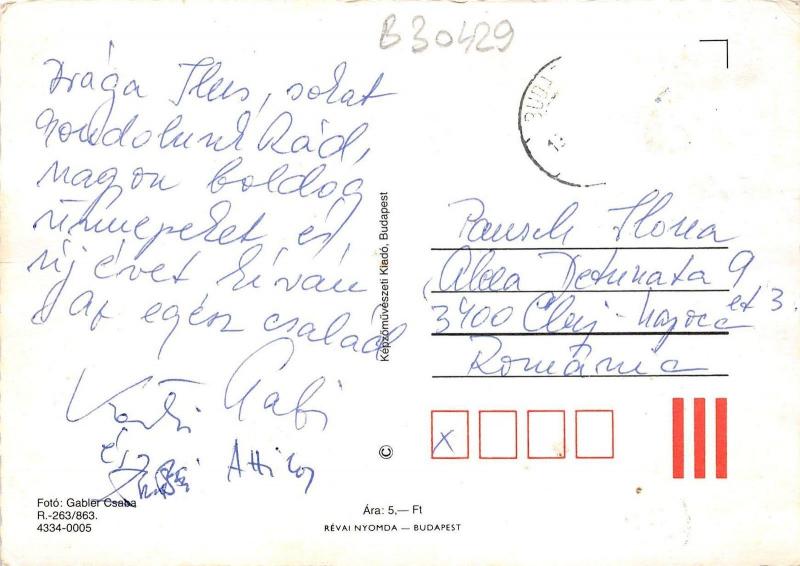 B30429
BUDA
Drága Ilus, sokat
gondolunk Rád,
nagyon boldog
ünnepeket és
új évet kíván
az egész család
Gabi
és
Attila
Képzőművészeti Kiadó, Budapest
Pausch Ilona
Alea Detunata 9
et 3.
3400 Cluj-Napoca
România
x
©
Fotó: Gabler Csaba
R.-263/863.
4334-0005
Ára: 5,— Ft
RÉVAI NYOMDA — BUDAPEST